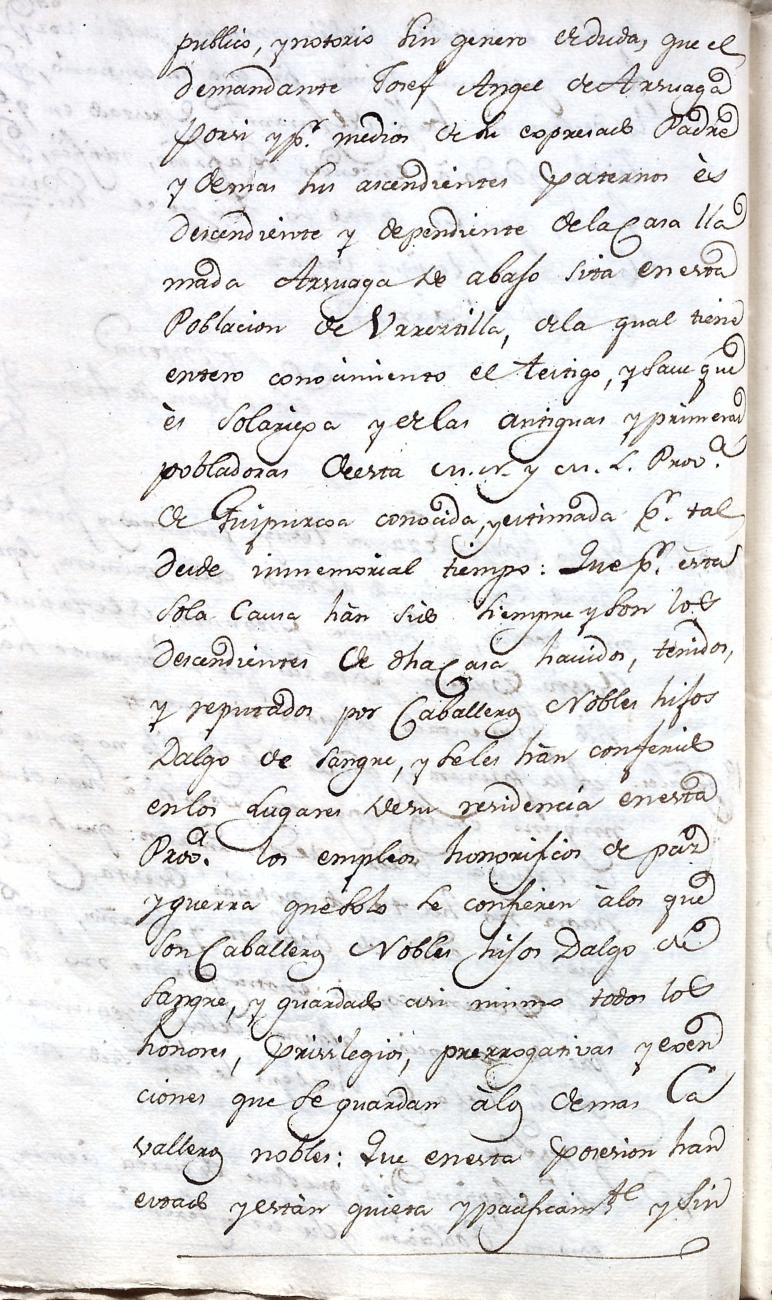 publico, y notorio sin genero de duda, que el
demandante Josef Angel de Arruaga
por si y p.r medios de su expresado Padre
y demas sus ascendientes paternos ès
descendiente y dependiente de la Casa lla
mada Arruaga de abajo sita en esta
Poblacion de Urrestilla, de la qual tiene
entero conocimiento el testigo, y save que
ès solariega y de las antiguas y primeras
pobladoras de esta M. N. y M. L. Prov.a
de Guipuzcoa conocida, y estimada p.r tal
desde inmemorial tiempo: Que p.r esta
sola causa hàn sido siempre y son los
descendientes de dha Casa havidos, tenidos,
y reputados por Caballeros Nobles hijos
Dalgo de sangre, y se les hàn conferido
en los Lugares de su residencia en esta
Prov.a los empleos honorificos de paz
y guerra que solo se confieren à los que
son Caballeros Nobles hijos Dalgo de
sangre, y guardado asi mismo todos los
honores, privilegios, prerrogativas y exen
ciones que se guardan à los demas Ca
valleros nobles: Que en esta posesion han
estado y estàn quieta y pacificam.te y sin